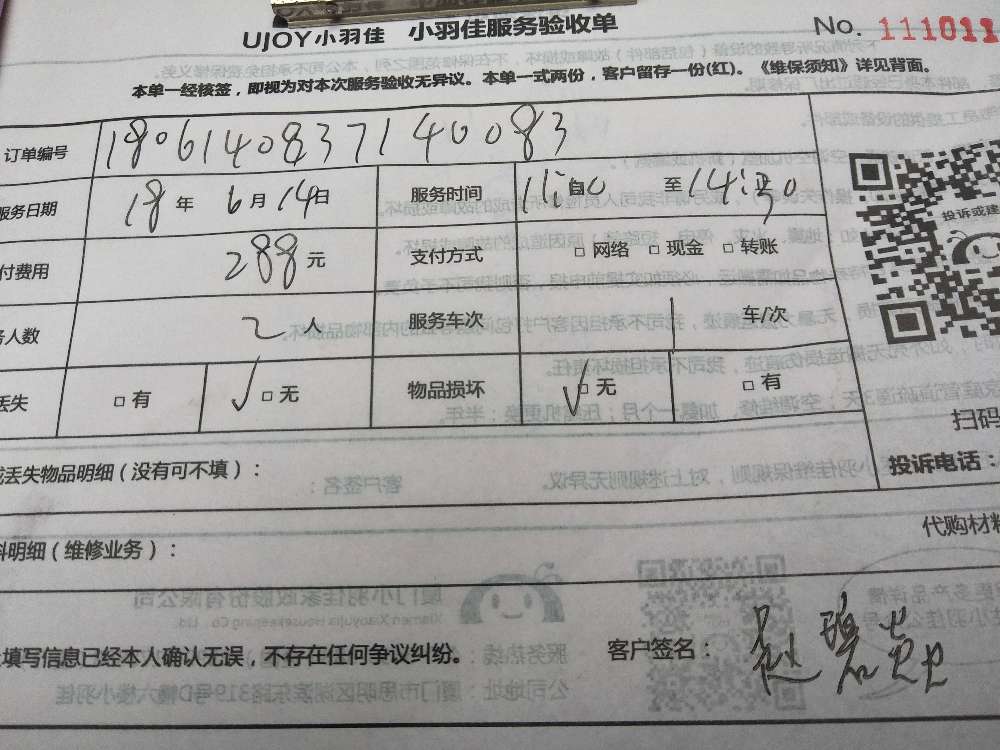 UJOY小羽佳 小羽佳服务验收单 No. 111011
本单一经核签，即视为对本次服务验收无异议。本单一式两份，客户留存一份(红)。《维保须知》详见背面。
订单编号 180614083714 0083
服务日期 18年 6月14日 服务时间 11:00 至 14:30
付费用 288元 支付方式 □网络 □现金 □转账
务人数 2人 服务车次 1 车/次
丢失 □有 √□无 物品损坏 √□无 □有
投诉或建
扫码
或丢失物品明细（没有可不填）： 投诉电话：
料明细（维修业务）： 代购材料
填写信息已经本人确认无误，不存在任何争议纠纷。 客户签名：